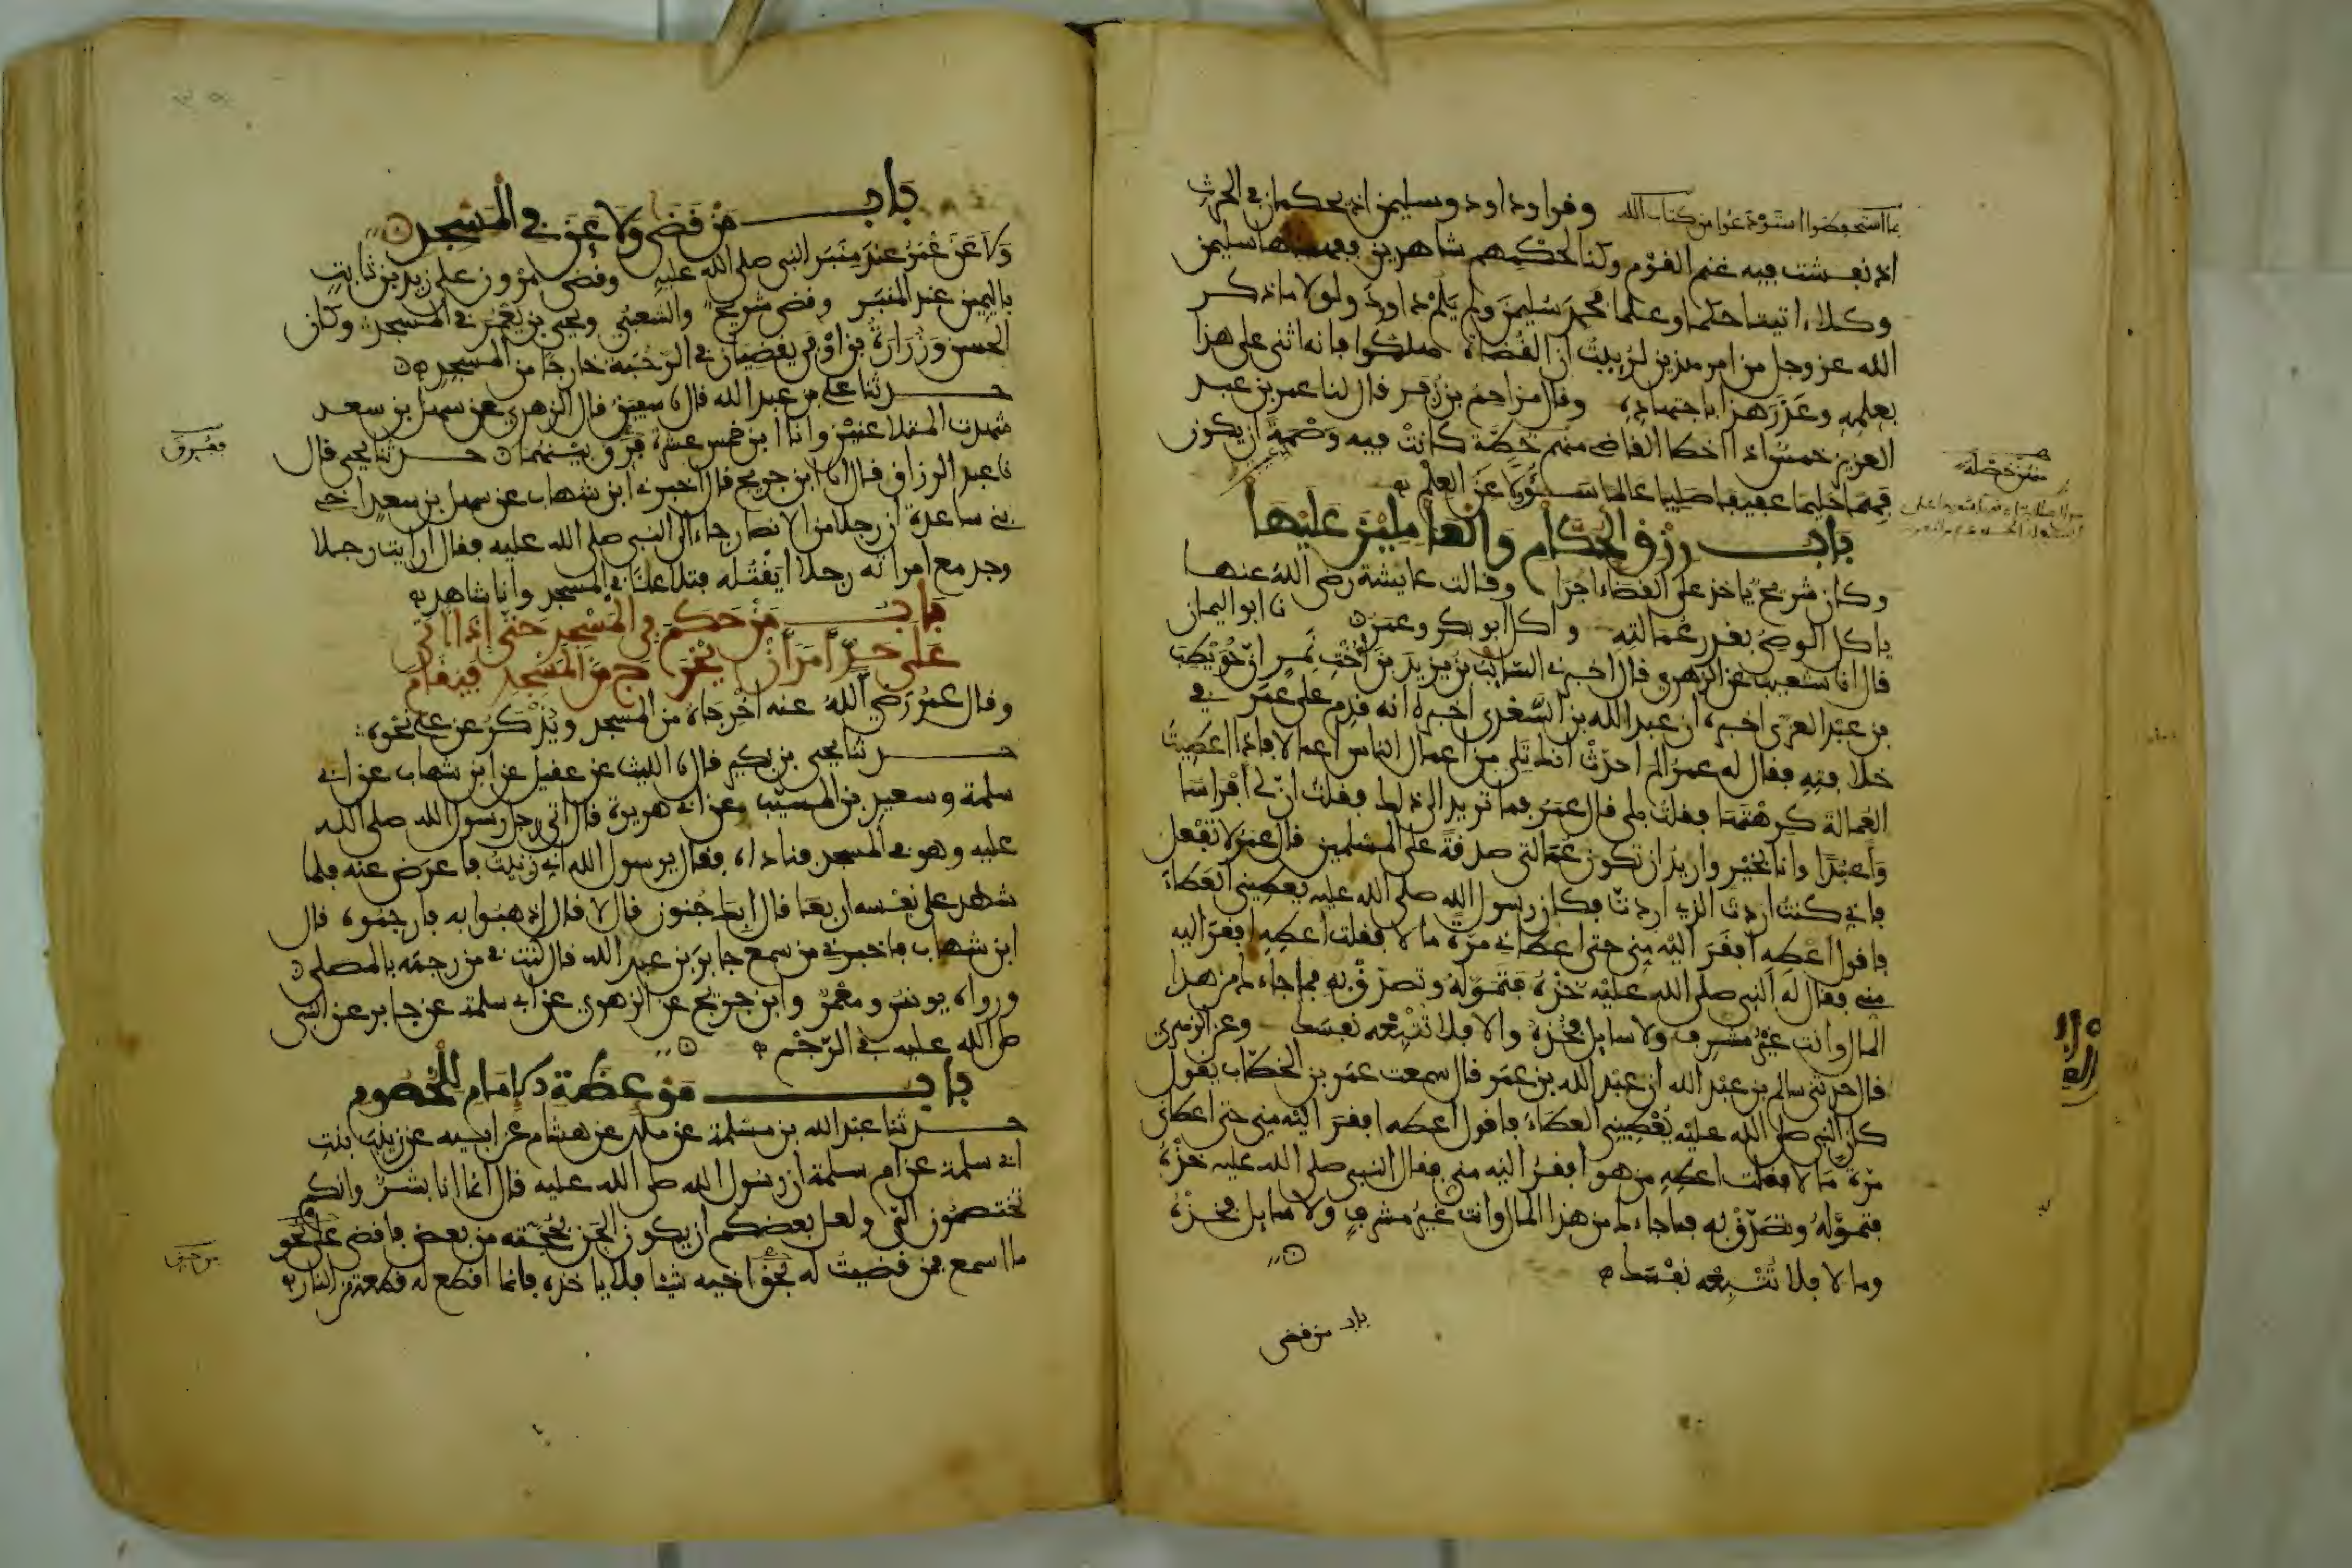 بما استحفظوا استودعوا من كتاب الله وقرا وداود وسليمن اذ يحكمان في الحرث
اذ نفشت فيه غنم القوم وكنا لحكمهم شاهدين ففهمناها سليمن
وكلا اتينا حكما وعلما فحمد سليمن ولم يلم داود ولولا ما ذكر
الله عز وجل من امر هذين لرئيت ان القضاة هلكوا فانه اثنى على هذا
بعلمه وعذر هذا باجتهاده وقال مزاحم بن زفر قال لنا عمر بن عبد
العزيز خمس اذا اخطا القاضي منهم خطة كانت فيه وصمة ان يكون
فهما حليما عفيفا صليبا عالما سئولا عن العلم
باب رزق الحكام والعاملين عليها
وكان شريح ياخذ على القضاء اجرا وقالت عايشة رضي الله عنها
ياكل الوصي بقدر عمالته واكل ابو بكر وعمر نا ابو اليمان
قال انا شعيب عن الزهري قال اخبرني السايب بن يزيد بن اخت نمر ان حويطب
بن عبد العزى اخبره ان عبد الله بن السعدي اخبره انه قدم على عمر في
خلافته فقال له عمر الم احدث انك تلي من اعمال الناس اعمالا فاذا اعطيت
العمالة كرهتها فقلت بلى قال عمر فما تريد الى ذلك فقلت ان لي افراسا
واعبدا وانا بخير واريد ان تكون عمالتي صدقة على المسلمين قال عمر لا تفعل
فاني كنت اردت الذي اردت فكان رسول الله صلى الله عليه يعطيني العطاء
فاقول اعطه افقر اليه مني حتى اعطاني مرة مالا فقلت اعطه افقر اليه
مني فقال له النبي صلى الله عليه خذه فتموله وتصدق به فما جاءك من هذا
المال وانت غير مشرف ولا سايل فخذه والا فلا تتبعه نفسك وعن الزهري
قال حدثني سالم بن عبد الله ان عبد الله بن عمر قال سمعت عمر بن الخطاب يقول
كان النبي صلى الله عليه يعطيني العطاء فاقول اعطه افقر اليه مني حتى اعطاني
مرة مالا فقلت اعطه من هو افقر اليه مني فقال النبي صلى الله عليه خذه
فتموله وتصدق به فما جاءك من هذا المال وانت غير مشرف ولا سايل فخذه
وما لا فلا تتبعه نفسك
باب من قضى
باب من قضى ولاعن في المسجد
ولاعن عمر عند منبر النبي صلى الله عليه وقضى مروان على زيد بن ثابت
باليمين عند المنبر وقضى شريح والشعبي ويحيى بن يعمر في المسجد وكان
الحسن وزرارة بن اوفى يقضيان في الرحبة خارجا من المسجد
حدثنا علي بن عبد الله قال نا سفين قال الزهري عن سهل بن سعد
شهدت المتلاعنين وانا ابن خمس عشرة فرق بينهما حدثنا يحيى قال
نا عبد الرزاق قال انا ابن جريج قال اخبرني ابن شهاب عن سهل بن سعد اخي
بني ساعدة ان رجلا من الانصار جاء الى النبي صلى الله عليه فقال ارايت رجلا
وجد مع امراته رجلا ايقتله فتلاعنا في المسجد وانا شاهد
باب من حكم في المسجد حتى اذا اتى
على حد امر ان يخرج من المسجد فيقام
وقال عمر رضي الله عنه اخرجاه من المسجد ويذكر عن علي نحوه
حدثنا يحيى بن بكير قال نا الليث عن عقيل عن ابن شهاب عن ابي
سلمة وسعيد بن المسيب عن ابي هريرة قال اتى رجل رسول الله صلى الله
عليه وهو في المسجد فناداه فقال يرسول الله اني زنيت فاعرض عنه فلما
شهد على نفسه اربعا قال ابك جنون قال لا قال اذهبوا به فارجموه قال
ابن شهاب فاخبرني من سمع جابر بن عبد الله قال كنت في من رجمه بالمصلى
ورواه يونس ومعمر وابن جريج عن الزهري عن ابي سلمة عن جابر عن النبي
صلى الله عليه في الرجم
باب موعظة الامام للخصوم
حدثنا عبد الله بن مسلمة عن ملك عن هشام عن ابيه عن زينب بنت
ابي سلمة عن ام سلمة ان رسول الله صلى الله عليه قال انما انا بشر وانكم
تختصمون الي ولعل بعضكم ان يكون الحن بحجته من بعض فاقضي على نحو
ما اسمع فمن قضيت له بحق اخيه شيئا فلا ياخذه فانما اقطع له قطعة من النار